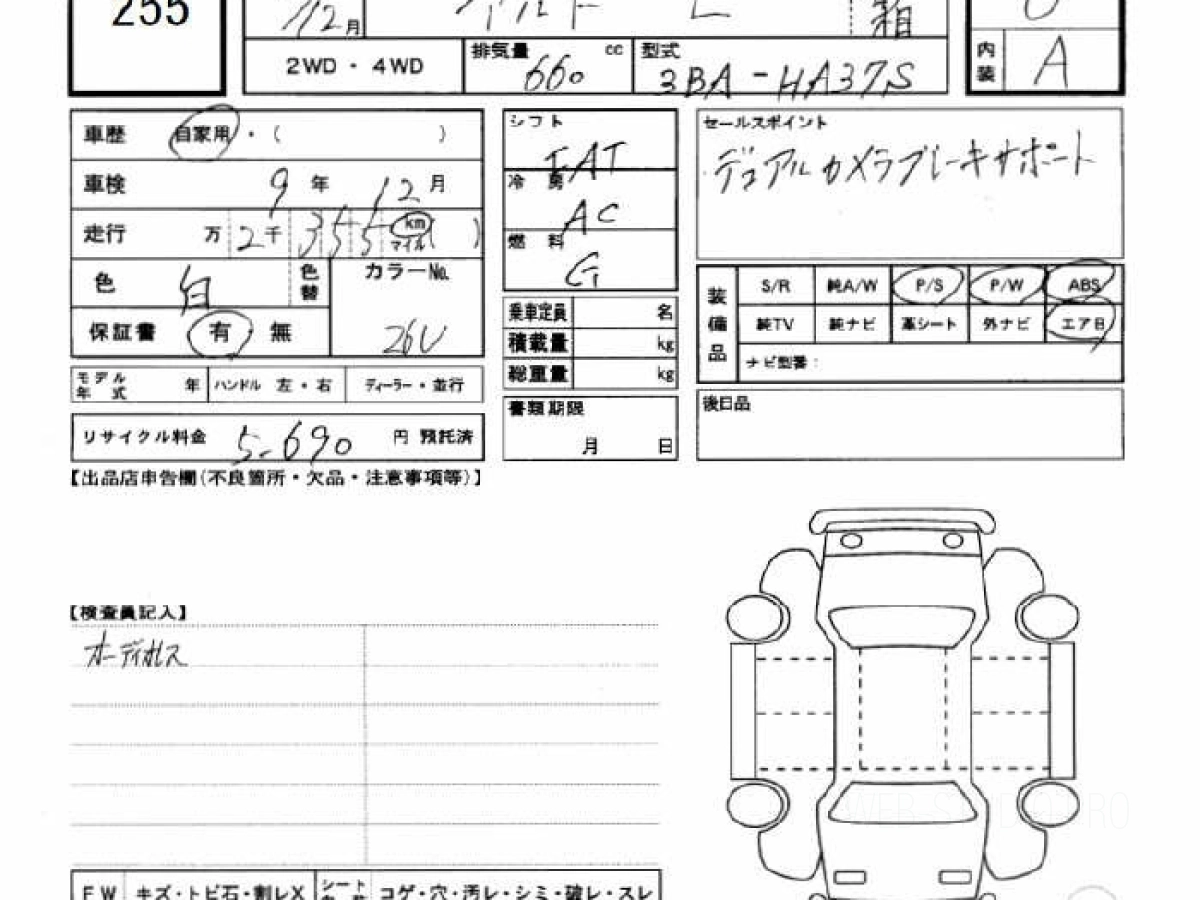 255
12月
アルト L
箱
2WD・4WD
排気量 cc
660
型式
3BA-HA37S
内装
A
車歴 自家用・( )
車検 9年 12月
走行 万 2千 355 km マイル ( )
色 白 色替
カラーNo.
26U
保証書 有 無
モデル年式 年
ハンドル 左・右
ディーラー・並行
リサイクル料金 5-690 円 預託済
シフト
FAT
冷房
AC
燃料
G
乗車定員 名
積載量 kg
総重量 kg
書類期限
月 日
セールスポイント
デュアルカメラブレーキサポート
装備品
S/R 純A/W P/S P/W ABS
純TV 純ナビ 革シート 外ナビ エアB
ナビ型番：
後日品
【出品店申告欄(不良箇所・欠品・注意事項等)】
【検査員記入】
オーディオレス
FW キズ・トビ石・割レX
シート コゲ・穴・汚レ・シミ・破レ・スレ